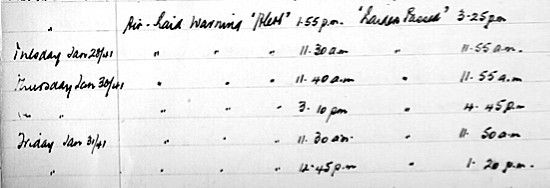 " Air-Raid Warning "Alert" 1.55 p.m. "Raiders Passed" 3-25 pm
Tuesday Jan 28/41 " " " 11.30 a.m " 11.55 a.m.
Thursday Jan 30/41 " " " 11.40 a.m " 11.55 a.m
" " " " " 3.10 pm " 4.45 pm
Friday Jan 31/41 " " " 11.30 am " 11.50 a.m
" " " " 12.45 p.m " 1.20 p.m.